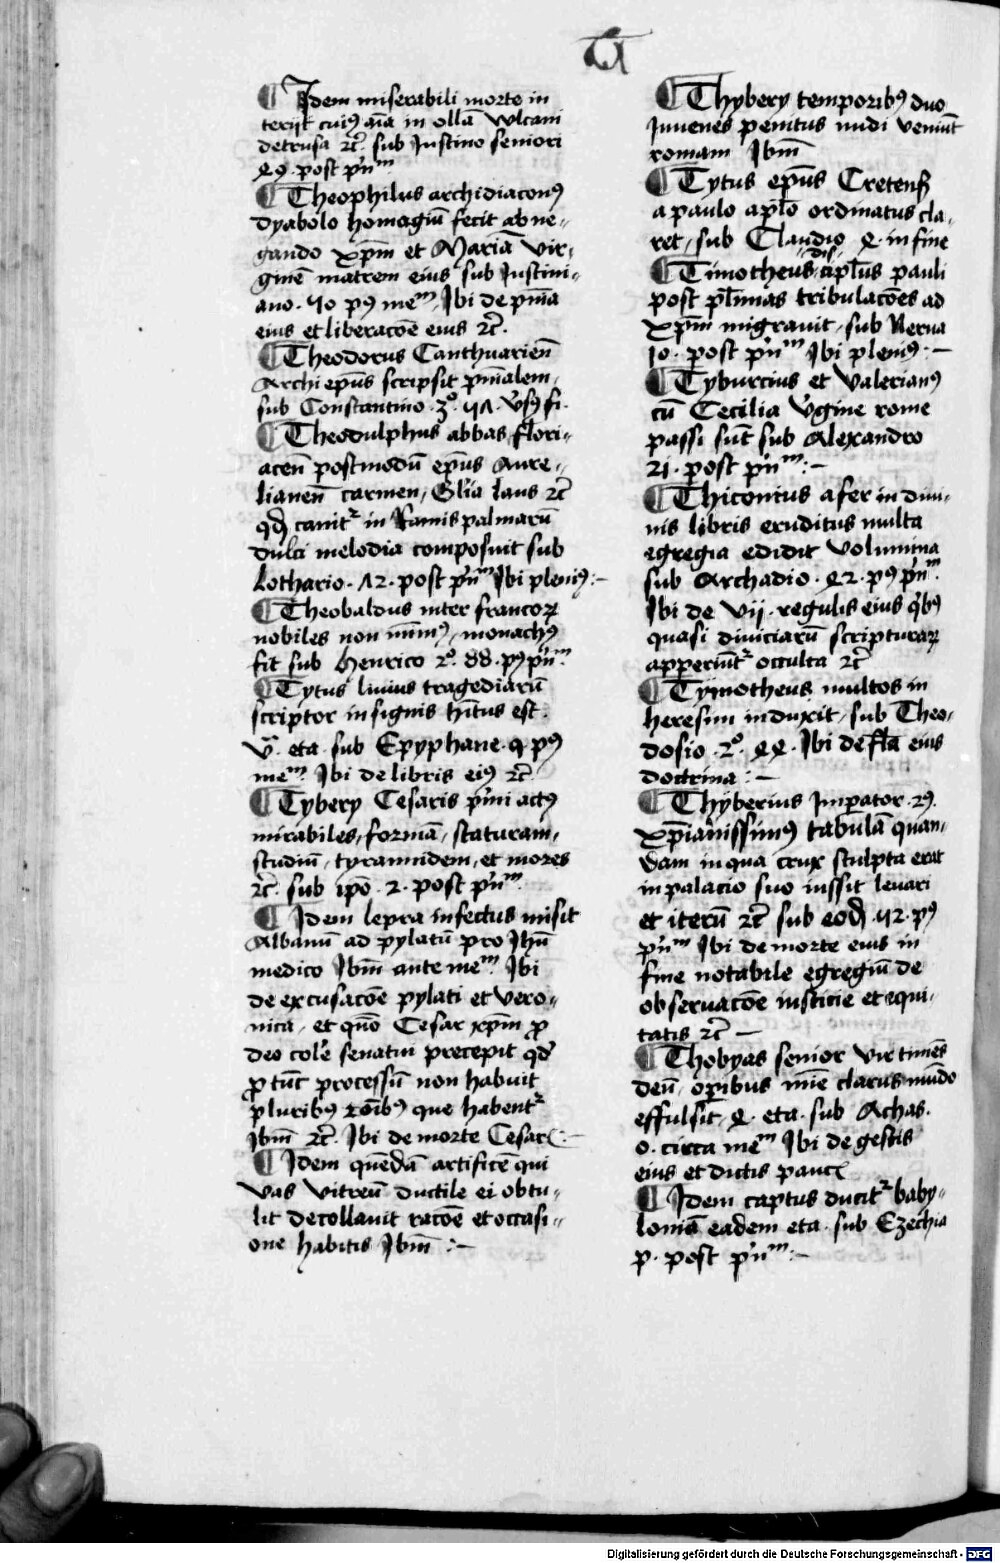 ¶ Idem miserabili morte in
terijt cuiꝰ aīa in ollā vulcani
detrusa ⁊c̄. sub Justino seniori
¶ Theophilus archidiaconꝰ
dyabolo homagiū fecit abne-
gando xp̄m et Mariā vir-
ginē matrem eius sub Justini-
ano. 40 pꝰ meᵐ. Ibi de pn̄ia
eius et liberacōe eius ⁊c̄.
¶ Theodorus Canthuarien̄
Archiep̄us scripsit pn̄ialem
sub Constantino .3ͦ.
¶ Theodulphus abbas flori-
acen̄ postmodū ep̄us Aure-
lianen̄ carmen, Gl̄ia laus ⁊c̄
qd̄ canitᷣ in Ramis palmarū
dulci melodia composuit sub
Lothario. 12. post pn̄ᵐ Ibi pleniꝰ :~
¶ Theobaldus inter francoꝝ
nobiles non mīmꝰ, monachꝰ
fit sub Henrico 2ͦ. 88. pꝰ pn̄ᵐ.
¶ Tytus liuius tragediarū
scriptor insignis hītus est.
v̄. eta. sub Epyphane. q pꝰ
meᵐ. Ibi de libris eiꝰ ⁊c̄
¶ Tybery Cesaris pͥmi actꝰ
mirabiles, formā, staturam,
studiū, tyrannidem, et mores
⁊c̄. sub ipō. 2. post pn̄ᵐ.
¶ Idem lepra infectus misit
Albanū ad pylatū pro Jhū
medico Ibm̄ ante meᵐ. Ibi
de excusacōe pylati et vero-
nica, et quō Cesar xp̄m ꝓ
deo colē senatui precepit qd̄
ꝓ tūc processū non habuit
pluribꝰ rōibꝰ que habentᷣ
Ibm̄ ⁊c̄. Ibi de morte Cesarꝭ :~
¶ Idem quendā artificē qui
vas vitreū ductile ei obtu-
lit decollauit racōe et occasi-
one habitis Ibm̄ :~
¶ Thybery temporibꝰ duo
Juuenes penitus nudi veniūt
romam Ibm̄
¶ Tytus ep̄us Cretens̄
a paulo ap̄lo ordinatus cla-
ret, sub Claudio . in fine
¶ Timotheus dis cip̄lus pauli
post pl̄imas tribulacōes ad
xp̄m migrauit, sub Nerua
10. post pn̄ᵐ Ibi pleniꝰ :~
¶ Tyburcius et Valerianꝰ
cū Cecilia v̄gine rome
passi sūt sub Alexandro
21. post pn̄ᵐ :~
¶ Thiconius afer in diui-
nis libris eruditus multa
egregia edidit volumina
sub Archadio . 42. pꝰ pn̄ᵐ.
Ibi de vij. regulis eius qͥbꝰ
quasi diuiciarū scripturaꝝ
apperiūtᷣ occulta ⁊c̄
¶ Tymotheus multos in
heresim induxit, sub Theo-
dosio .2ͦ. 44. Ibi de fl̄a eius
doctrina :~
¶ Thyberius Imperator .2ꝰ.
xp̄ianissimꝰ tabulā quan-
dam in qua crux sculpta erat
in palacio suo iussit leuari
et iterū ⁊c̄ sub eod̄. 42. pꝰ
pn̄ᵐ Ibi de morte eius in
fine notabile egregiū de
obseruacōe iusticie et equi-
tatis ⁊c̄ ~
¶ Thobyas senior vir timēs
deū, oꝑibus mīe clarus mūdo
effulsit, 4. eta. sub Achas.
o. circa meᵐ Ibi de gestis
eius et dictis paucꝭ
¶ Idem captus ducitᷣ baby-
loniā eadem eta. sub Ezechia
p. post pn̄ᵐ :~